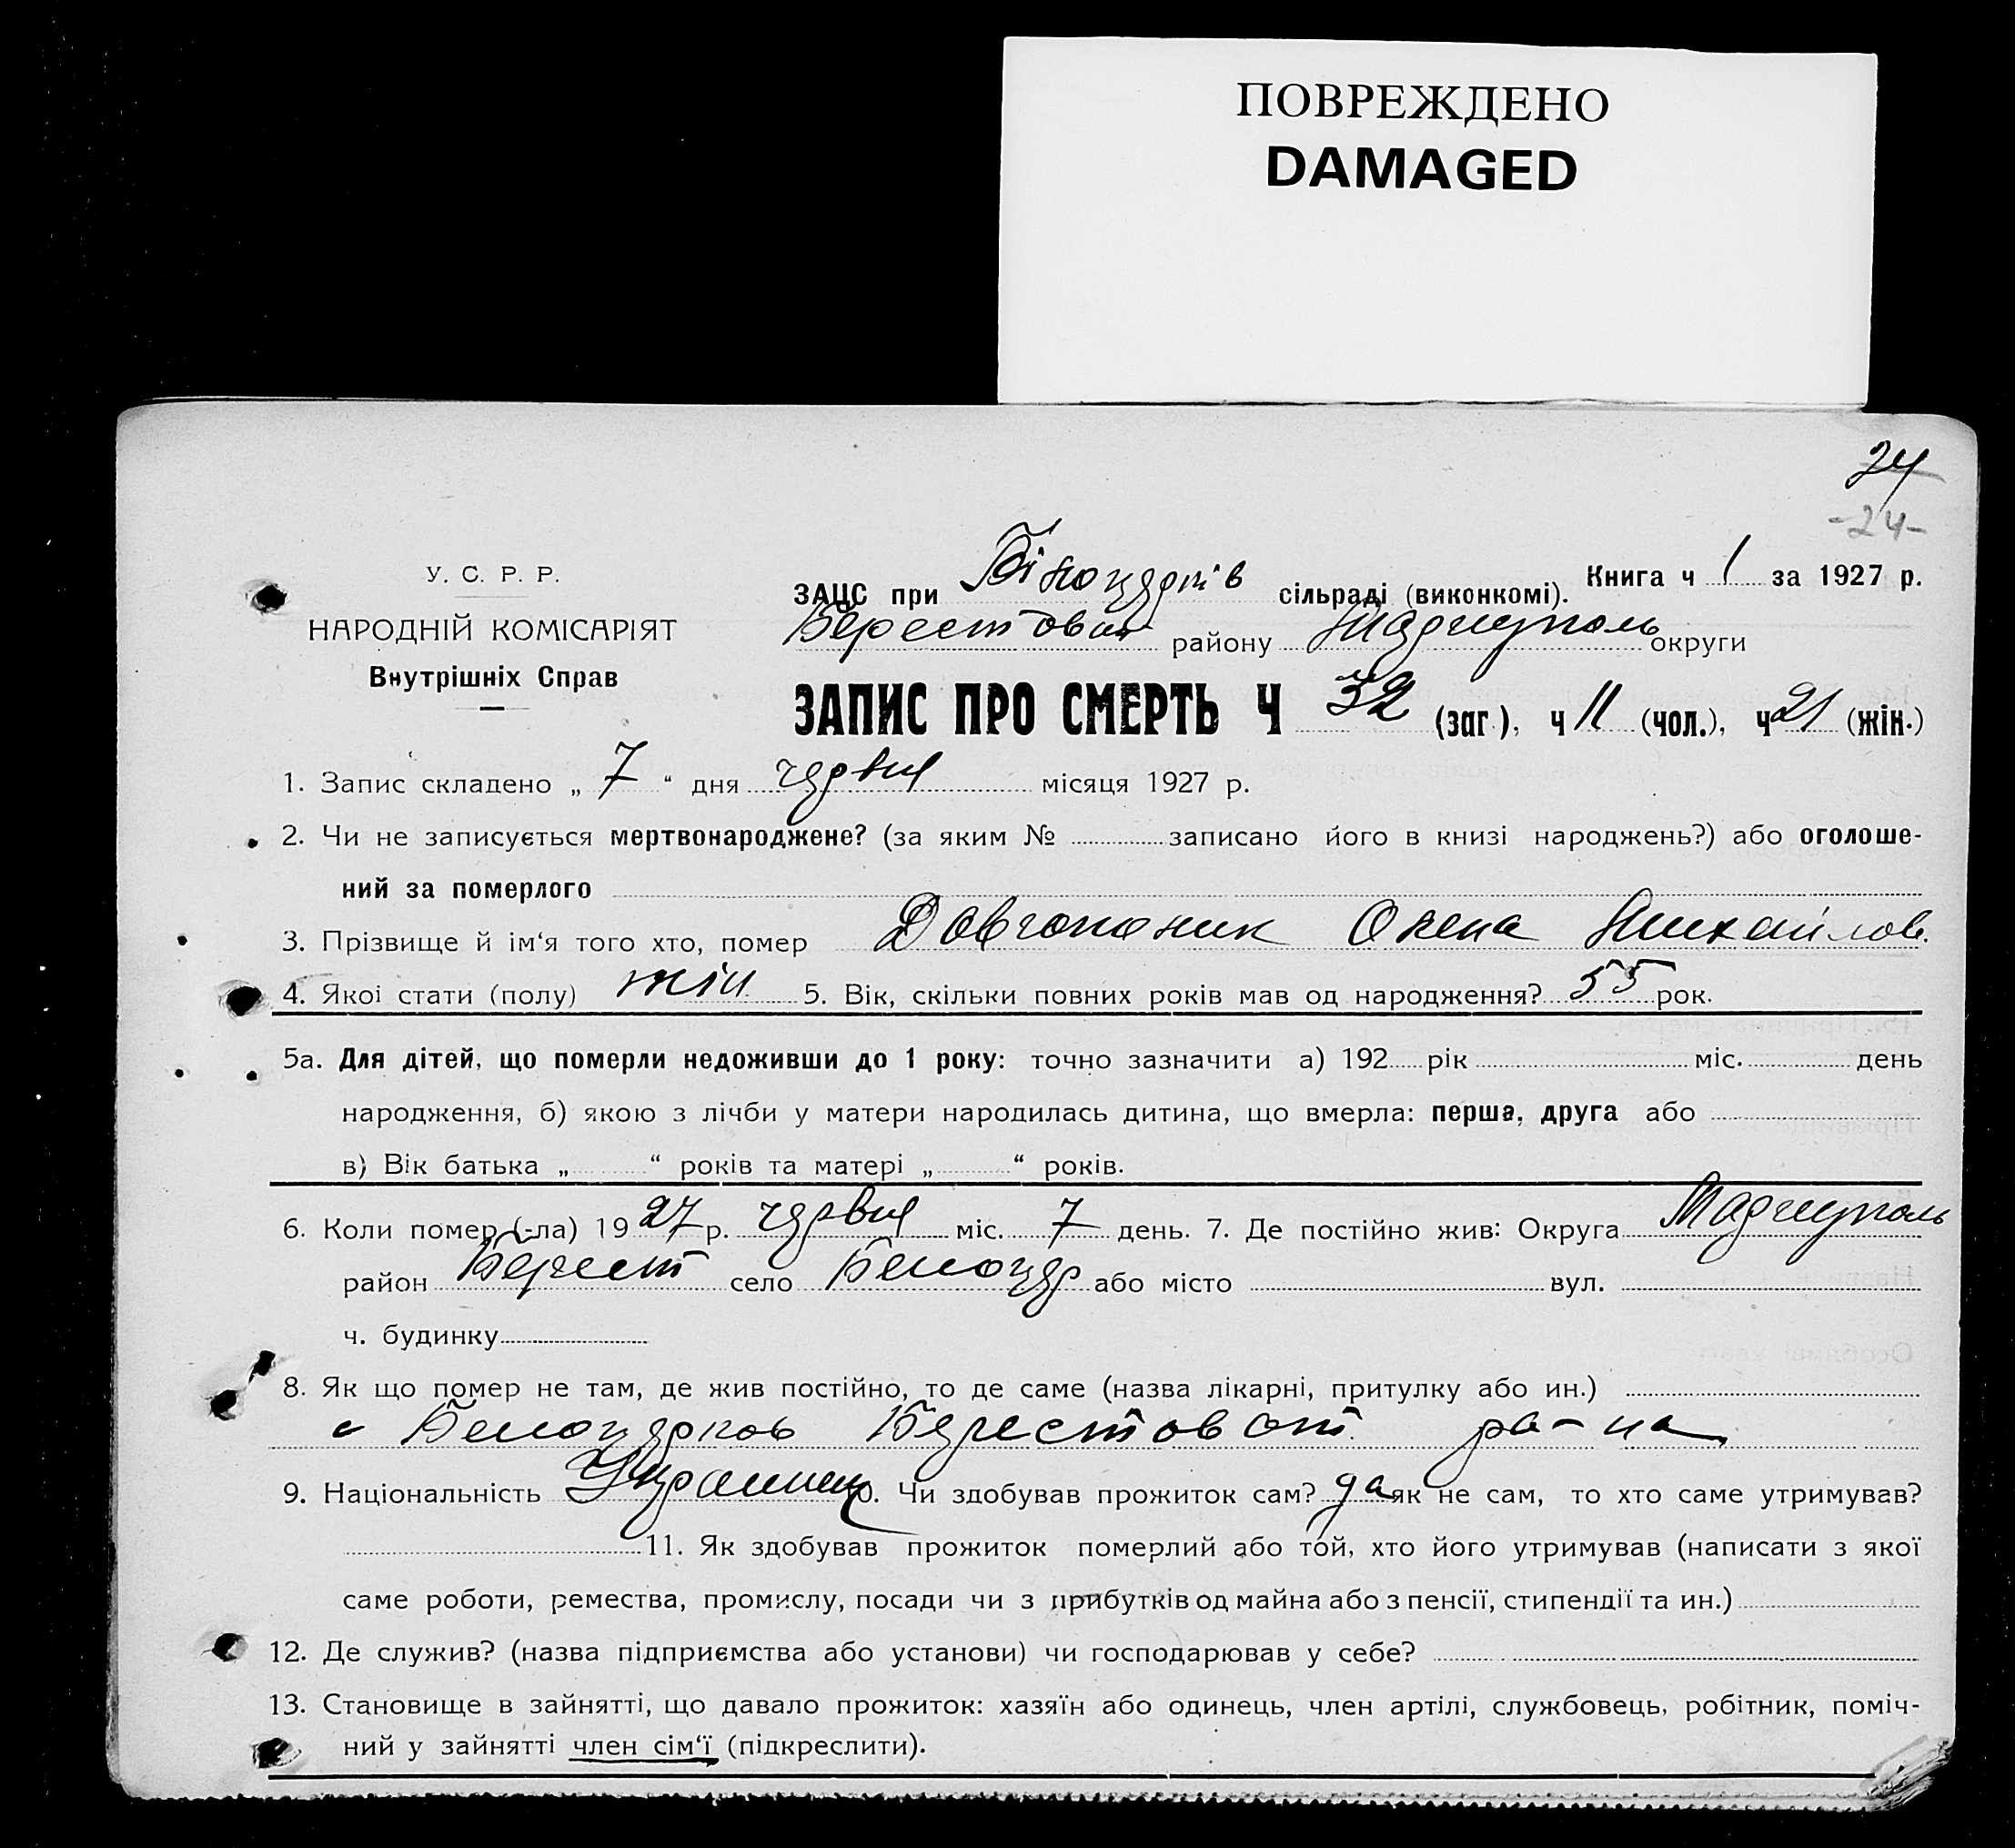 ПОВРЕЖДЕНО
DAMAGED
24
-24-
У. С. Р. Р.
НАРОДНІЙ КОМІСАРІЯТ
Внутрішніх Справ
ЗАЦС при Білоцерків сільраді (виконкомі). Книга ч 1 за 1927 р.
Берестован району Мариуполь округи
ЗАПИС ПРО СМЕРТЬ Ч 32 (заг.), ч 11 (чол.), ч 21 (жін.)
1. Запис складено „ 7 “ дня червня місяця 1927 р.
2. Чи не записується мертвонароджене? (за яким № записано його в книзі народжень?) або оголоше-
ний за померлого
3. Прізвище й ім‘я того хто, помер Довгополик Олена Михайлов.
4. Якої стати (полу) жін. 5. Вік, скільки повних років мав од народження? 55 рок.
5а. Для дітей, що померли недоживши до 1 року: точно зазначити а) 192 рік міс. день
народження, б) якою з лічби у матери народилась дитина, що вмерла: перша, друга або
в) Вік батька „ “ років та матері „ “ років.
6. Коли помер (-ла) 1927 р. червня міс. 7 день. 7. Де постійно жив: Округа Мариуполь
район Берест село Белоцер або місто вул.
ч. будинку
8. Як що помер не там, де жив постійно, то де саме (назва лікарні, притулку або ин.)
с Белоцерков Берестоват. ра-на
9. Національність Украинец 10. Чи здобував прожиток сам? да як не сам, то хто саме утримував?
11. Як здобував прожиток померлий або той, хто його утримував (написати з якої
саме роботи, ремества, промислу, посади чи з прибутків од майна або з пенсії, стипендії та ин.)
12. Де служив? (назва підприємства або установи) чи господарював у себе?
13. Становище в зайнятті, що давало прожиток: хазяїн або одинець, член артілі, службовець, робітник, поміч-
ний у зайнятті член сім‘ї (підкреслити).